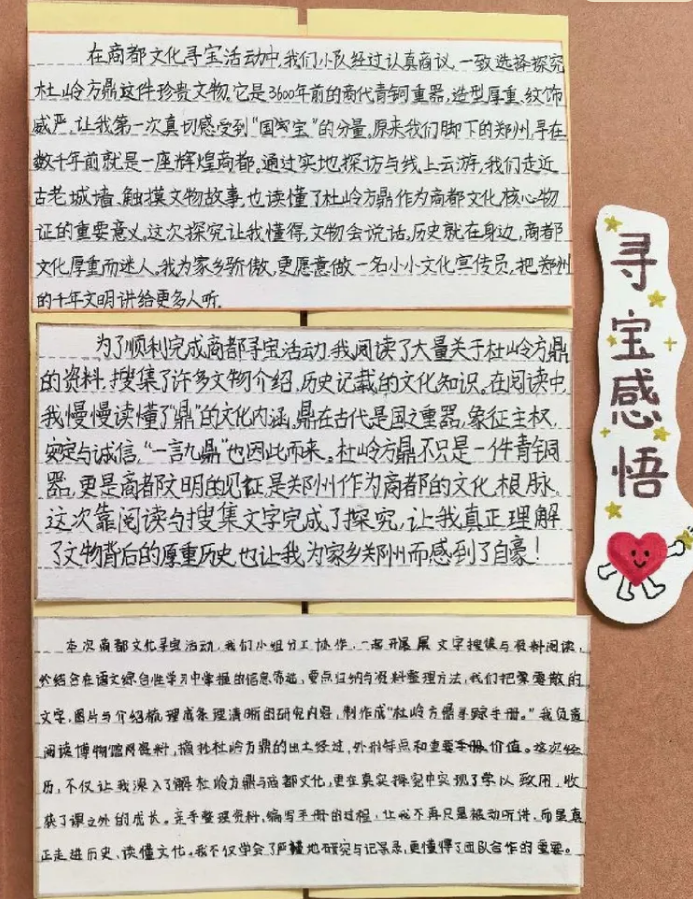 在商都文化寻宝活动中,我们小队经过认真商议,一致选择探究
杜岭方鼎这件珍贵文物。它是3600年前的商代青铜重器,造型厚重、纹饰
威严,让我第一次真切感受到“国宝”的分量。原来我们脚下的郑州,早在
数千年前就是一座辉煌商都。通过实地探访与线上云游,我们走近
古老城墙、触摸文物故事,也读懂了杜岭方鼎作为商都文化核心物
证的重要意义。这次探究让我懂得,文物会说话,历史就在身边,商都
文化厚重而迷人。我为家乡骄傲,更愿意做一名小小文化宣传员,把郑州
的千年文明讲给更多人听。
为了顺利完成商都寻宝活动,我阅读了大量关于杜岭方鼎
的资料,搜集了许多文物介绍,历史记载的文化知识。在阅读中
我慢慢读懂了“鼎”的文化内涵,鼎在古代是国之重器,象征主权,
安定与诚信,“一言九鼎”也因此而来。杜岭方鼎不只是一件青铜
器,更是商都文明的见证,是郑州作为商都的文化根脉。
这次靠阅读与搜集文字完成了探究,让我真正理解
了文物背后的厚重历史,也让我为家乡郑州而感到了自豪!
本次商都文化寻宝活动,我们小组分工协作,一起开展文字搜集与资料阅读,
结合在语文综合性学习中掌握的信息筛选,要点归纳与资料整理方法,我们把零散的
文字,图片与介绍梳理成条理清晰的研究内容,制作成“杜岭方鼎寻踪手册。”我负责
阅读博物馆资料,摘抄杜岭方鼎的出土经过,外形特点和重要价值。这次经
历,不仅让我深入了解杜岭方鼎与商都文化,更在真实探究中实现了学以致用,收
获了课之外的成长。亲手整理资料,编写手册的过程,让我不再只是被动听讲,而是真
正走进历史,读懂文化。我不仅学会了严谨地研究与记录,更懂得了团队合作的重要。
寻宝感悟